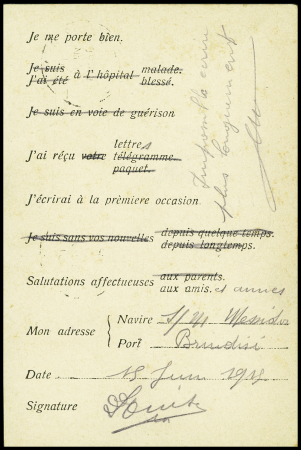 Je me porte bien.
Je suis à l'hôpital malade.
J'ai été blessé.
Je suis en voie de guérison
J'ai reçu votre lettres
télégramme.
paquet.
J'écrirai à la prèmiere occasion
Je suis sans vos nouvelles depuis quelque temps.
depuis longtemps.
Salutations affectueuses aux parents.
aux amis. et amies
Mon adresse { Navire
Port Brindisi
Date 15 Juin 191
Signature
Impossible écrire
plus longuement